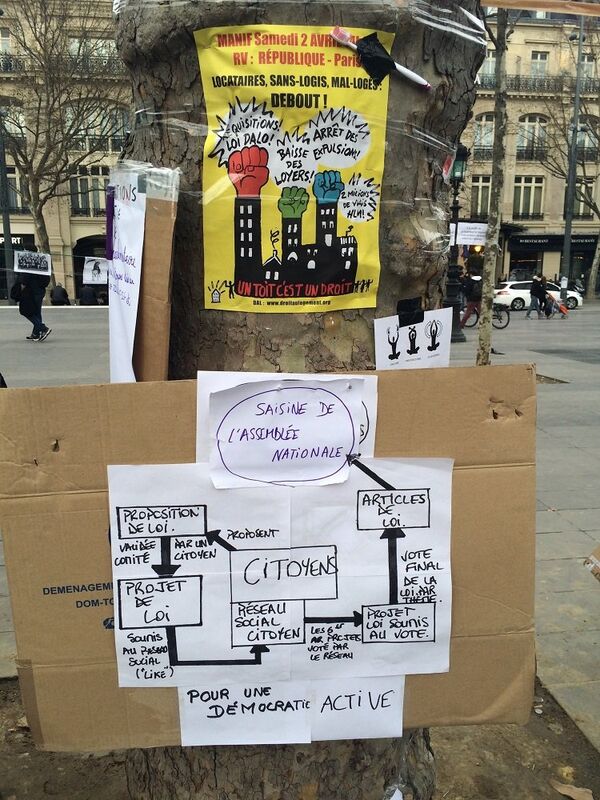 MANIF Samedi 2 AVRIL
RV : RÉPUBLIQUE - Paris
LOCATAIRES, SANS-LOGIS, MAL-LOGÉS :
DEBOUT !
RÉQUISITIONS,
LOI DALO!
BAISSE
DES
LOYERS!
ARRÊT DES
EXPULSIONS!
2 MILLIONS
DE VRAIS
HLM!
UN TOIT C'EST UN DROIT
DAL : www.droitaulogement.org
SAISINE DE
L'ASSEMBLÉE
NATIONALE
PROPOSITION
DE LOI.
PROPOSENT
ARTICLES
DE LOI.
VALIDÉE PAR UN
COMITÉ CITOYEN
CITOYENS
VOTE
FINAL
DE LA
LOI PAR
THÈME.
PROJET
DE
LOI
RÉSEAU
SOCIAL
CITOYEN
PROJET
LOI SOUMIS
AU VOTE.
SOUMIS
AU RÉSEAU
SOCIAL
("LIKE")
LES 6
PROJETS
VOTÉ PAR
LE RÉSEAU
DEMENAGEME
DOM-TO
POUR UNE
DÉMOCRATIE ACTIVE